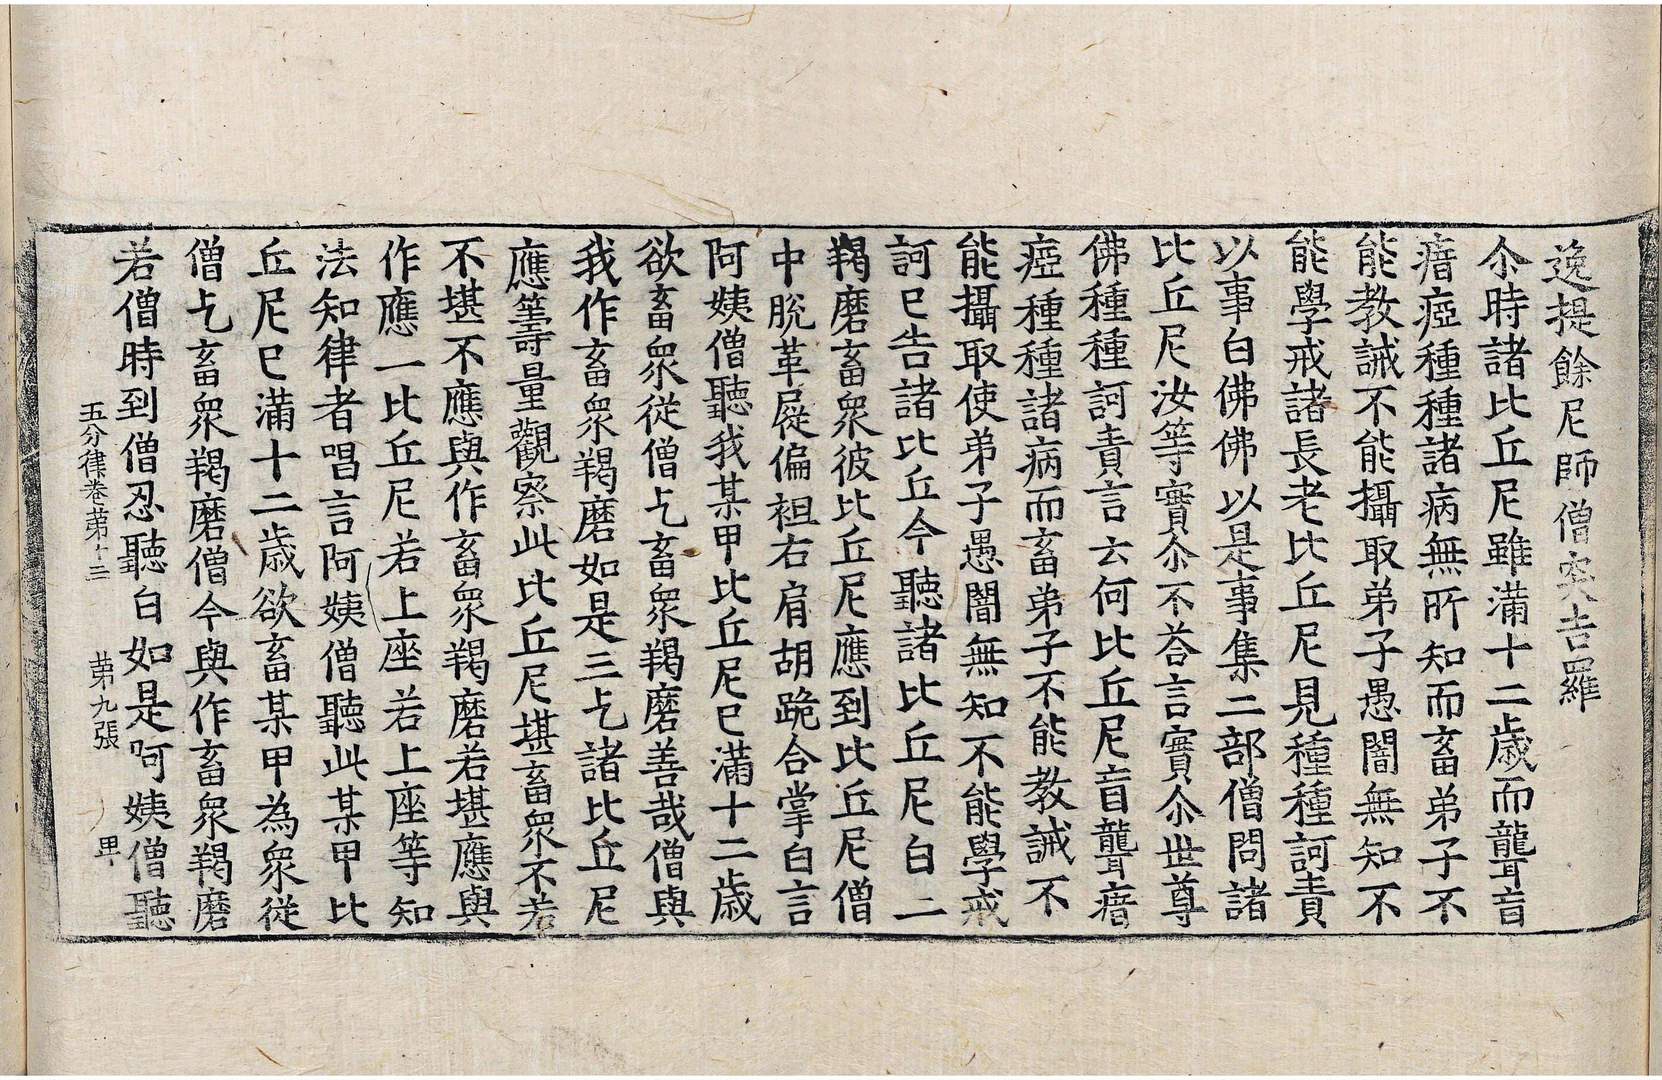 逸提餘尼師僧突吉羅
尒時諸比丘尼雖滿十二歲而聾盲
瘖瘂種種諸病無所知而畜弟子不
能教誡不能攝取弟子愚闇無知不
能學戒諸長老比丘尼見種種訶責
以事白佛佛以是事集二部僧問諸
比丘尼汝等實尒不荅言實尒世尊
佛種種訶責言云何比丘尼盲聾瘖
瘂種種諸病而畜弟子不能教誡不
能攝取使弟子愚闇無知不能學戒
訶已告諸比丘今聽諸比丘尼白二
羯磨畜衆彼比丘尼應到比丘尼僧
中脫革屣偏袒右肩胡跪合掌白言
阿姨僧聽我某甲比丘尼已滿十二歲
欲畜衆從僧乞畜衆羯磨善哉僧與
我作畜衆羯磨如是三乞諸比丘尼
應籌量觀察此比丘尼堪畜衆不若
不堪不應與作畜衆羯磨若堪應與
作應一比丘尼若上座若上座等知
法知律者唱言阿姨僧聽此某甲比
丘尼已滿十二歲欲畜某甲為衆從
僧乞畜衆羯磨僧今與作畜衆羯磨
若僧時到僧忍聽白如是阿姨僧聽
五分律卷苐十二 苐九張 甲